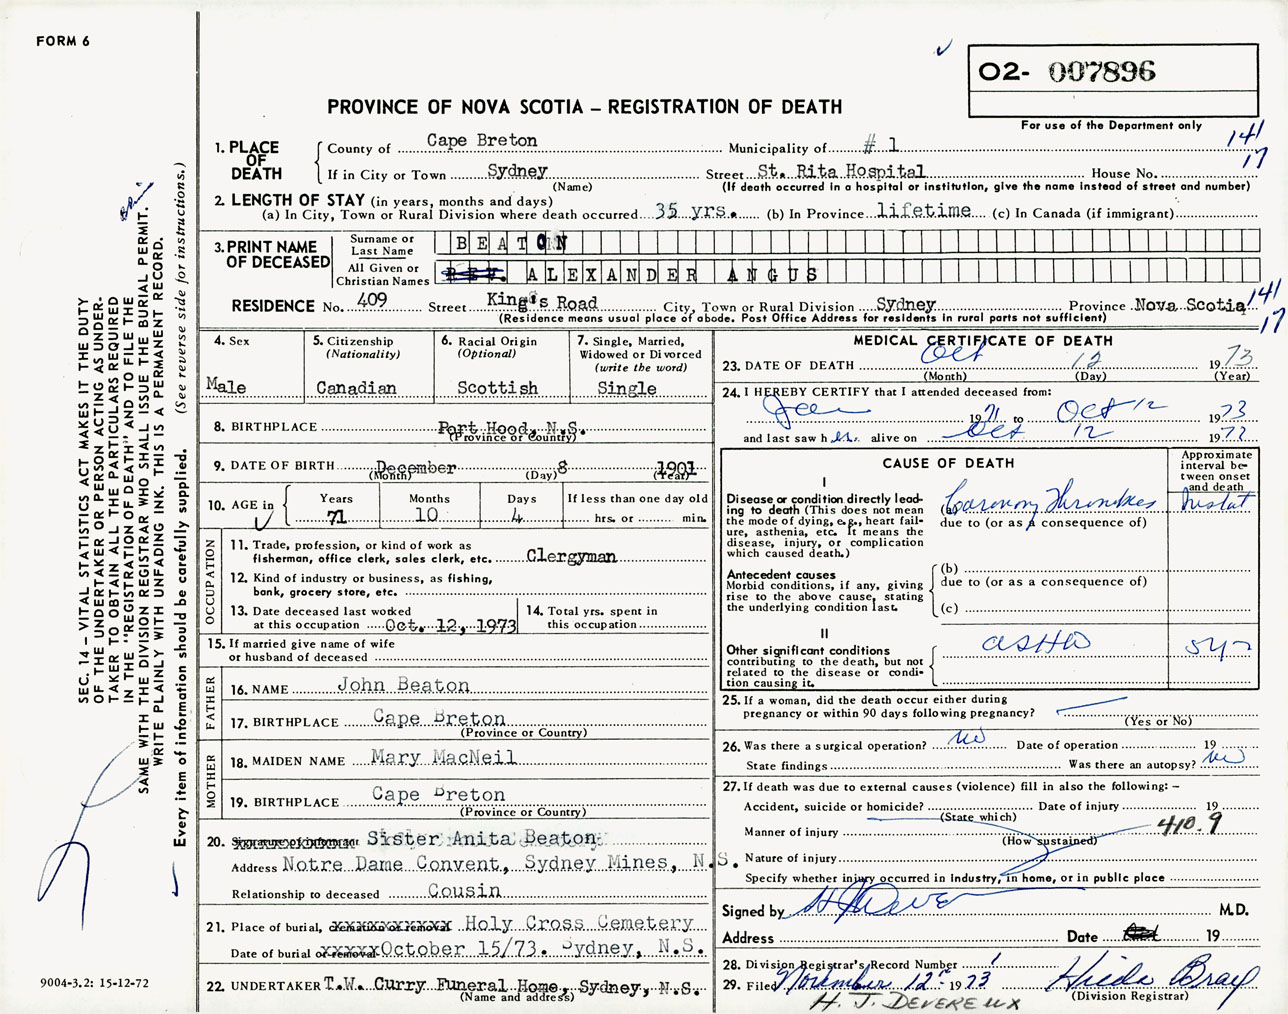 FORM 6
O2- 007896
PROVINCE OF NOVA SCOTIA – REGISTRATION OF DEATH
For use of the Department only
141
17
1. PLACE OF DEATH
County of Cape Breton Municipality of # 1
If in City or Town Sydney Street St. Rita Hospital House No.
(Name) (If death occurred in a hospital or institution, give the name instead of street and number)
2. LENGTH OF STAY (in years, months and days)
(a) In City, Town or Rural Division where death occurred 35 yrs. (b) In Province lifetime (c) In Canada (if immigrant)
3. PRINT NAME OF DECEASED
Surname or Last Name BEATON
All Given or Christian Names REV. ALEXANDER ANGUS
RESIDENCE No. 409 Street King's Road City, Town or Rural Division Sydney Province Nova Scotia 141
(Residence means usual place of abode. Post Office Address for residents in rural parts not sufficient) 17
4. Sex
Male
5. Citizenship (Nationality)
Canadian
6. Racial Origin (Optional)
Scottish
7. Single, Married, Widowed or Divorced (write the word)
Single
8. BIRTHPLACE Port Hood, N.S.
(Province or Country)
9. DATE OF BIRTH December 8 1901
(Month) (Day) (Year)
10. AGE in Years Months Days If less than one day old
71 10 4 hrs. or min.
OCCUPATION
11. Trade, profession, or kind of work as
fisherman, office clerk, sales clerk, etc. Clergyman
12. Kind of industry or business, as fishing,
bank, grocery store, etc.
13. Date deceased last worked
at this occupation Oct. 12, 1973
14. Total yrs. spent in
this occupation
15. If married give name of wife
or husband of deceased
FATHER
16. NAME John Beaton
17. BIRTHPLACE Cape Breton
(Province or Country)
MOTHER
18. MAIDEN NAME Mary MacNeil
19. BIRTHPLACE Cape Breton
(Province or Country)
20. Signature of informant Sister Anita Beaton
Address Notre Dame Convent, Sydney Mines, N.S.
Relationship to deceased Cousin
21. Place of burial, cremation or removal Holy Cross Cemetery
Date of burial or removal October 15/73. Sydney, N.S.
22. UNDERTAKER T.W. Curry Funeral Home, Sydney, N.S.
(Name and address)
MEDICAL CERTIFICATE OF DEATH
23. DATE OF DEATH Oct 12 1973
(Month) (Day) (Year)
24. I HEREBY CERTIFY that I attended deceased from:
1971 to Oct 12 1973
and last saw h alive on Oct 12 1973
CAUSE OF DEATH
Approximate interval between onset and death
I
Disease or condition directly leading to death (This does not mean the mode of dying, e.g., heart failure, asthenia, etc. It means the disease, injury, or complication which caused death.)
(a) Coronary Thrombosis
due to (or as a consequence of)
Antecedent causes
Morbid conditions, if any, giving rise to the above cause, stating the underlying condition last.
(b)
due to (or as a consequence of)
(c)
II
Other significant conditions
contributing to the death, but not related to the disease or condition causing it.
ASHD
25. If a woman, did the death occur either during
pregnancy or within 90 days following pregnancy?
(Yes or No)
26. Was there a surgical operation? no Date of operation 19
State findings Was there an autopsy? no
27. If death was due to external causes (violence) fill in also the following: –
Accident, suicide or homicide? Date of injury 19
(State which)
410.9
Manner of injury
(How sustained)
Nature of injury
Specify whether injury occurred in industry, in home, or in public place
Signed by H J Devereux M.D.
Address Date 19
28. Division Registrar's Record Number
29. Filed November 12th 1973 Hilda Bray
(Division Registrar)
H. J. DEVEREUX
SEC. 14 – VITAL STATISTICS ACT MAKES IT THE DUTY
OF THE UNDERTAKER OR PERSON ACTING AS UNDER-
TAKER TO OBTAIN ALL THE PARTICULARS REQUIRED
IN THE "REGISTRATION OF DEATH" AND TO FILE THE
SAME WITH THE DIVISION REGISTRAR WHO SHALL ISSUE THE BURIAL PERMIT.
WRITE PLAINLY WITH UNFADING INK. THIS IS A PERMANENT RECORD.
Every item of information should be carefully supplied. (See reverse side for instructions.)
9004-3.2: 15-12-72